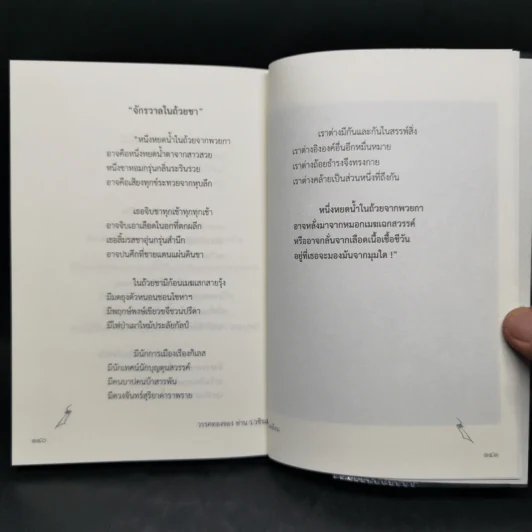 "จักรวาลในถ้วยชา"
"หนึ่งหยดน้ำในถ้วยจากพวยกา
อาจคือหนึ่งหยดน้ำตาจากสาวสวย
หนึ่งชาหอมกรุ่นกลิ่นระรินรวย
อาจคือเสียงทุกข์ระทวยจากหุบลึก
เธอจิบชาทุกเช้าทุกทุกเช้า
อาจจิบเอาเลือดในอกที่ตกผลึก
เธอลิ้มรสชาอุ่นกรุ่นสำนึก
อาจปนศึกที่ชายแดนแผ่นดินชา
ในถ้วยชามีก้อนเมฆเลกสายรุ้ง
มีมดยุงตัวหนอนชอนไชหาฯ
มีพฤกษ์พงษ์เขียวขจีชวนปรีดา
มีไฟป่าเผาไหม้ประลัยกัลป์
มีนักการเมืองเรืองกิเลส
มีนักเทศน์นักบุญดุนสวรรค์
มีคนบาปคนบ้าสารพัน
มีดวงจันทร์สุริยาดาราพราย
๑๔๐
เราต่างมีกันและกันในสรรพ์สิ่ง
เราต่างอิงองค์อื่นอีกหมื่นหมาย
เราต่างถ้อยธำรงจึงทรงกาย
เราต่างคล้ายเป็นส่วนหนึ่งที่ถึงกัน
หนึ่งหยดน้ำในถ้วยจากพวยกา
อาจหลั่งมาจากหมอกเมฆเฉกสวรรค์
หรืออาจกลั่นจากเลือดเนื้อเชื้อชีวัน
อยู่ที่เธอจะมองมันจากมุมใด !"
วรรคทองของ ท่าน ว.วชิรเมธี
๑๔๑